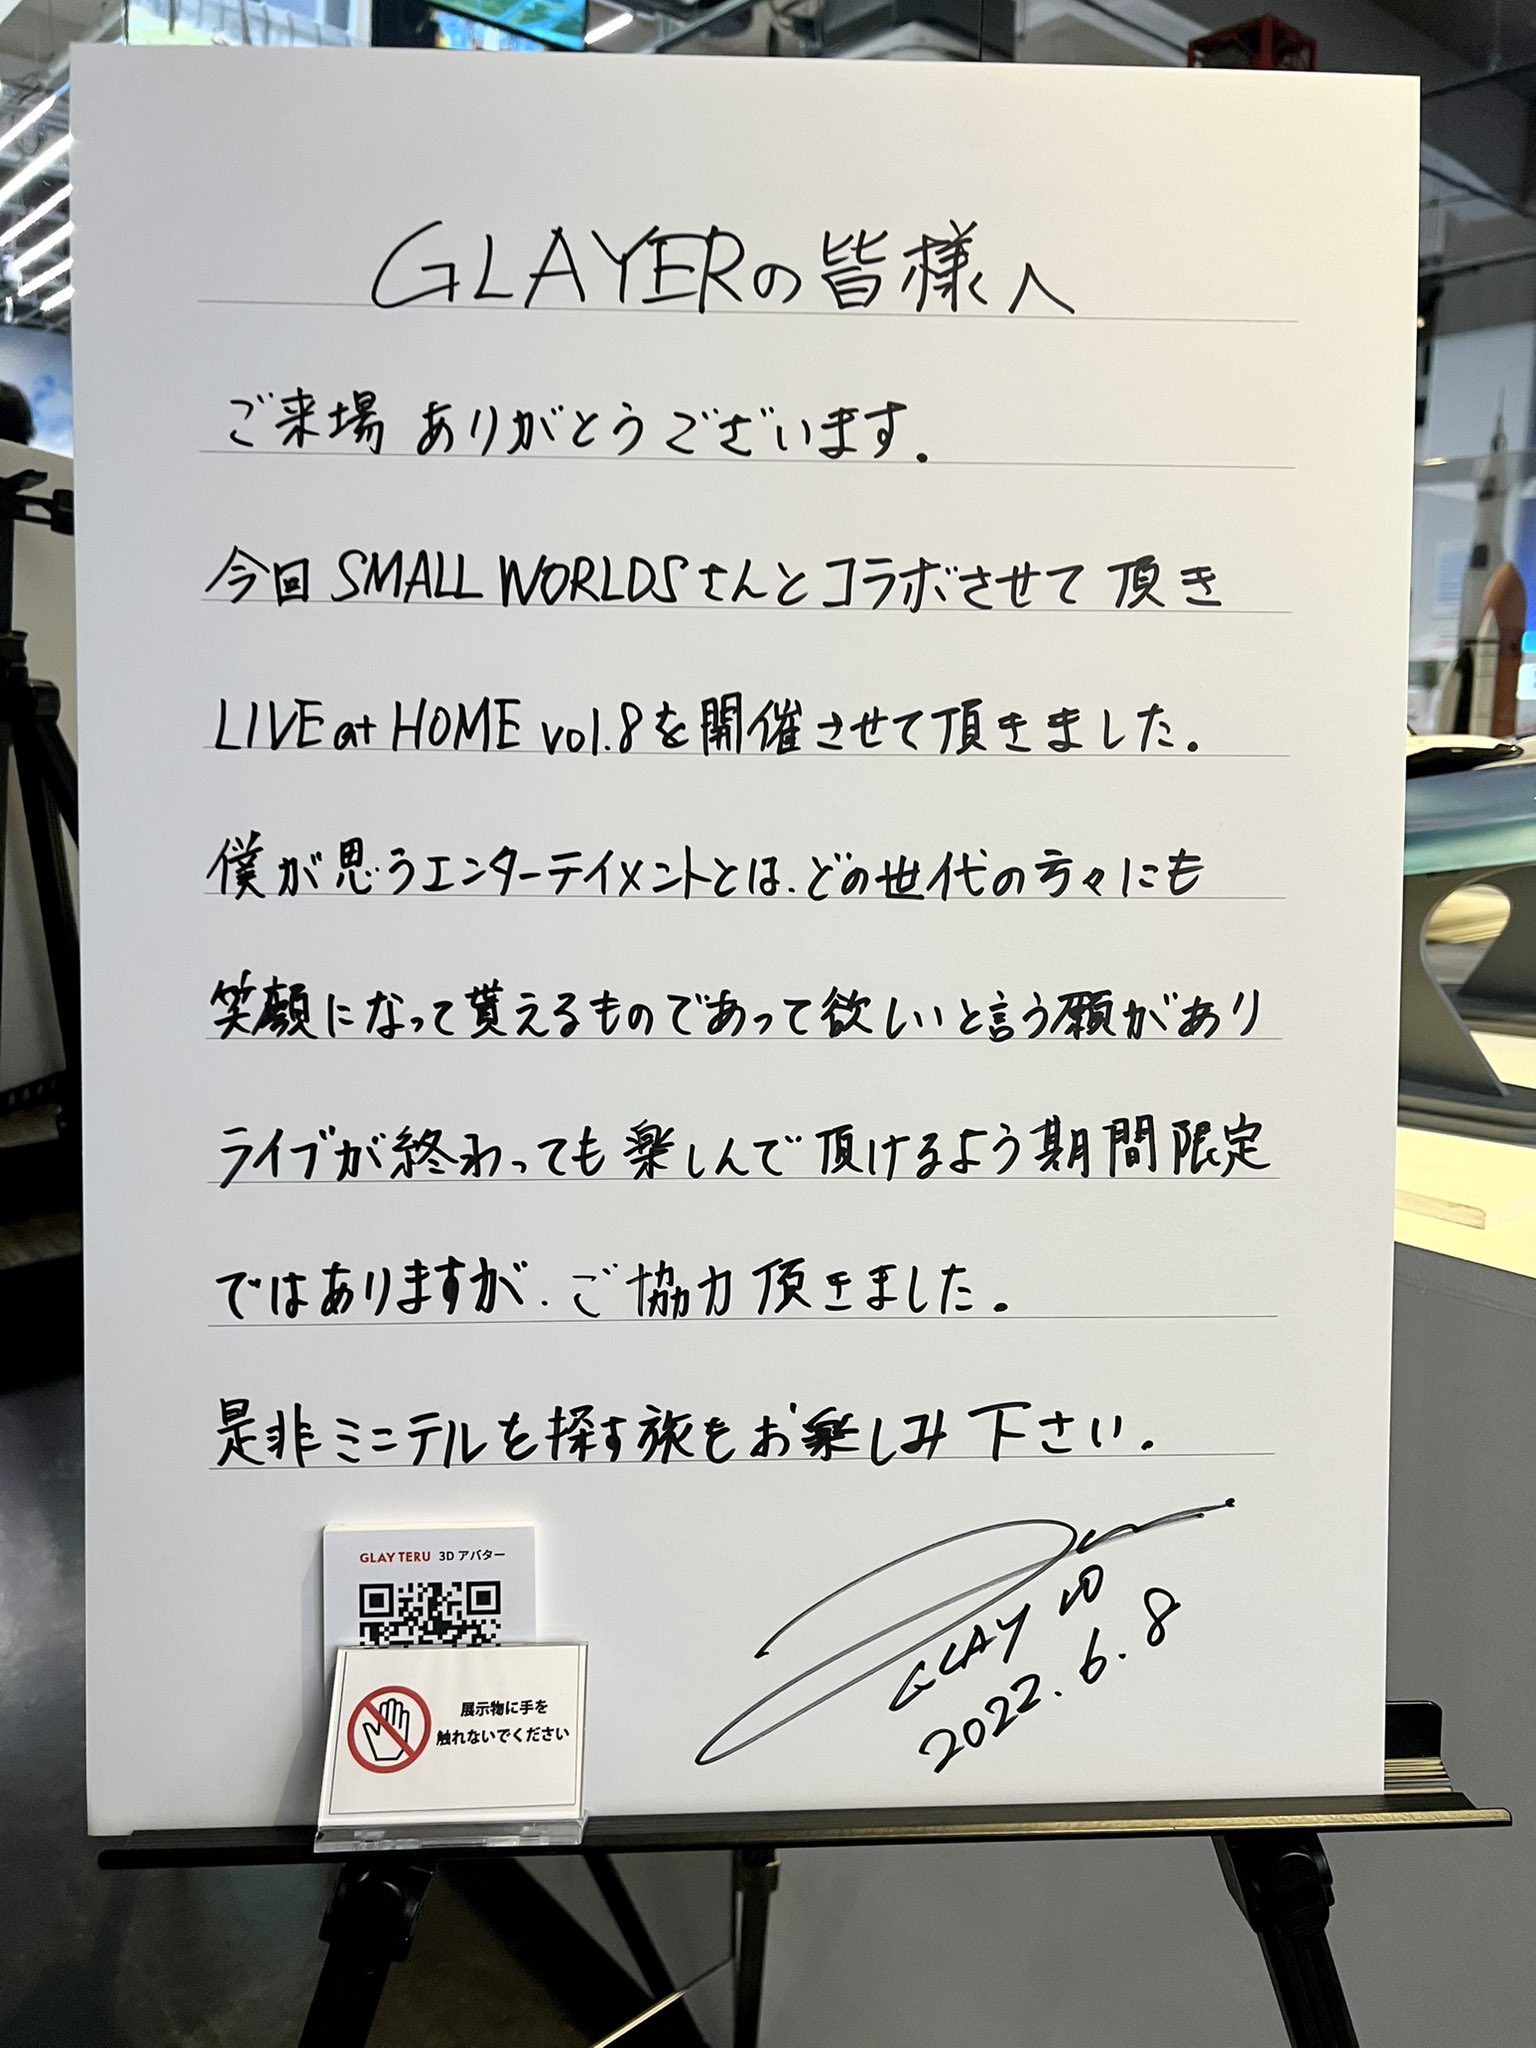 GLAYERの皆様へ
ご来場 ありがとうございます.
今回 SMALL WORLDSさんとコラボさせて頂き
LIVE at HOME vol.8を開催させて頂きました.
僕が思うエンターテイメントとは、どの世代の方々にも
笑顔になって貰えるものであって欲しいと言う願があり
ライブが終わっても楽しんで頂けるよう期間限定
ではありますが、ご協力頂きました.
是非ミニテルを探す旅もお楽しみ下さい.
GLAY
2022.6.8
GLAY TERU 3Dアバター
展示物に手を
触れないでください